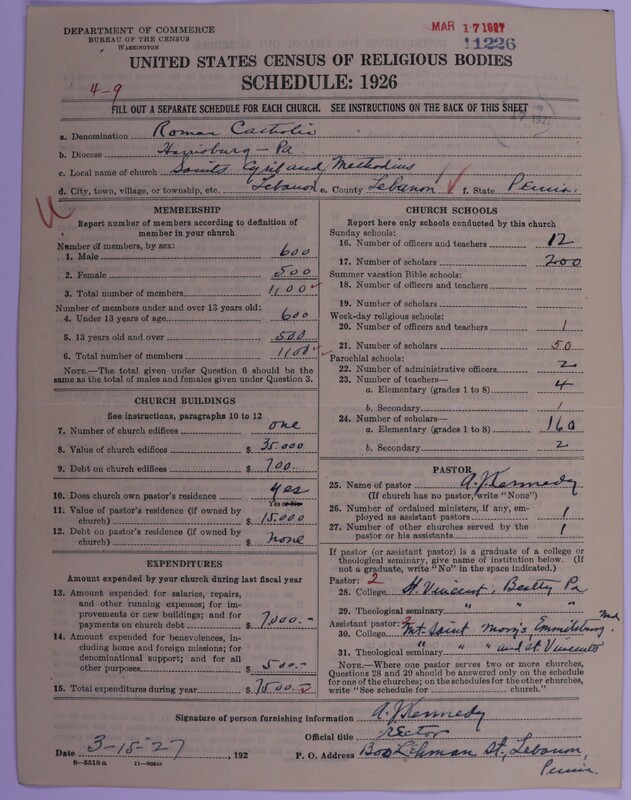 DEPARTMENT OF COMMERCE
BUREAU OF THE CENSUS
WASHINGTON
MAR 17 1927
11226
UNITED STATES CENSUS OF RELIGIOUS BODIES
SCHEDULE: 1926
4-9
FILL OUT A SEPARATE SCHEDULE FOR EACH CHURCH. SEE INSTRUCTIONS ON THE BACK OF THIS SHEET
a. Denomination Roman Catholic
b. Diocese Harrisburg - Pa
c. Local name of church Saints Cyril and Methodius
d. City, town, village, or township, etc. Lebanon e. County Lebanon f. State Penna.
MEMBERSHIP
Report number of members according to definition of member in your church
Number of members, by sex:
1. Male 600
2. Female 500
3. Total number of members 1100
Number of members under and over 13 years old:
4. Under 13 years of age 600
5. 13 years old and over 500
6. Total number of members 1100
NOTE.—The total given under Question 6 should be the
same as the total of males and females given under Question 3.
CHURCH BUILDINGS
See instructions, paragraphs 10 to 12
7. Number of church edifices one
8. Value of church edifices $ 35.000
9. Debt on church edifices $ 700.
10. Does church own pastor's residence yes
Yes or No
11. Value of pastor's residence (if owned by
church) $ 15.000
12. Debt on pastor's residence (if owned by
church) $ none
EXPENDITURES
Amount expended by your church during last fiscal year
13. Amount expended for salaries, repairs,
and other running expenses; for im-
provements or new buildings; and for
payments on church debt $ 7000.-
14. Amount expended for benevolences, in-
cluding home and foreign missions; for
denominational support; and for all
other purposes $ 500.-
15. Total expenditures during year $ 7500.-
CHURCH SCHOOLS
Report here only schools conducted by this church
Sunday schools:
16. Number of officers and teachers 12
17. Number of scholars 200
Summer vacation Bible schools:
18. Number of officers and teachers
19. Number of scholars
Week-day religious schools:
20. Number of officers and teachers 1
21. Number of scholars 50
Parochial schools:
22. Number of administrative officers 2
23. Number of teachers—
a. Elementary (grades 1 to 8) 4
b. Secondary 1
24. Number of scholars—
a. Elementary (grades 1 to 8) 160
b. Secondary 2
PASTOR
25. Name of pastor A. J. Kennedy
(If church has no pastor, write "None")
26. Number of ordained ministers, if any, em-
ployed as assistant pastors 1
27. Number of other churches served by the
pastor or his assistants 1
If pastor (or assistant pastor) is a graduate of a college or
theological seminary, give name of institution below. (If
not a graduate, write "No" in the space indicated.)
Pastor: 2
28. College St. Vincent, Beatty Pa
29. Theological seminary " " "
Assistant pastor:
30. College Mt. Saint Mary's Emmitsburg Md
31. Theological seminary " " " and St Vincents
NOTE.—Where one pastor serves two or more churches,
Questions 28 and 29 should be answered only on the schedule
for one of the churches; on the schedules for the other churches,
write "See schedule for church."
Signature of person furnishing information A. J. Kennedy
Official title rector
Date 3-15-27, 192
P. O. Address Lehman St, Lebanon,
Penna.
8—5518a